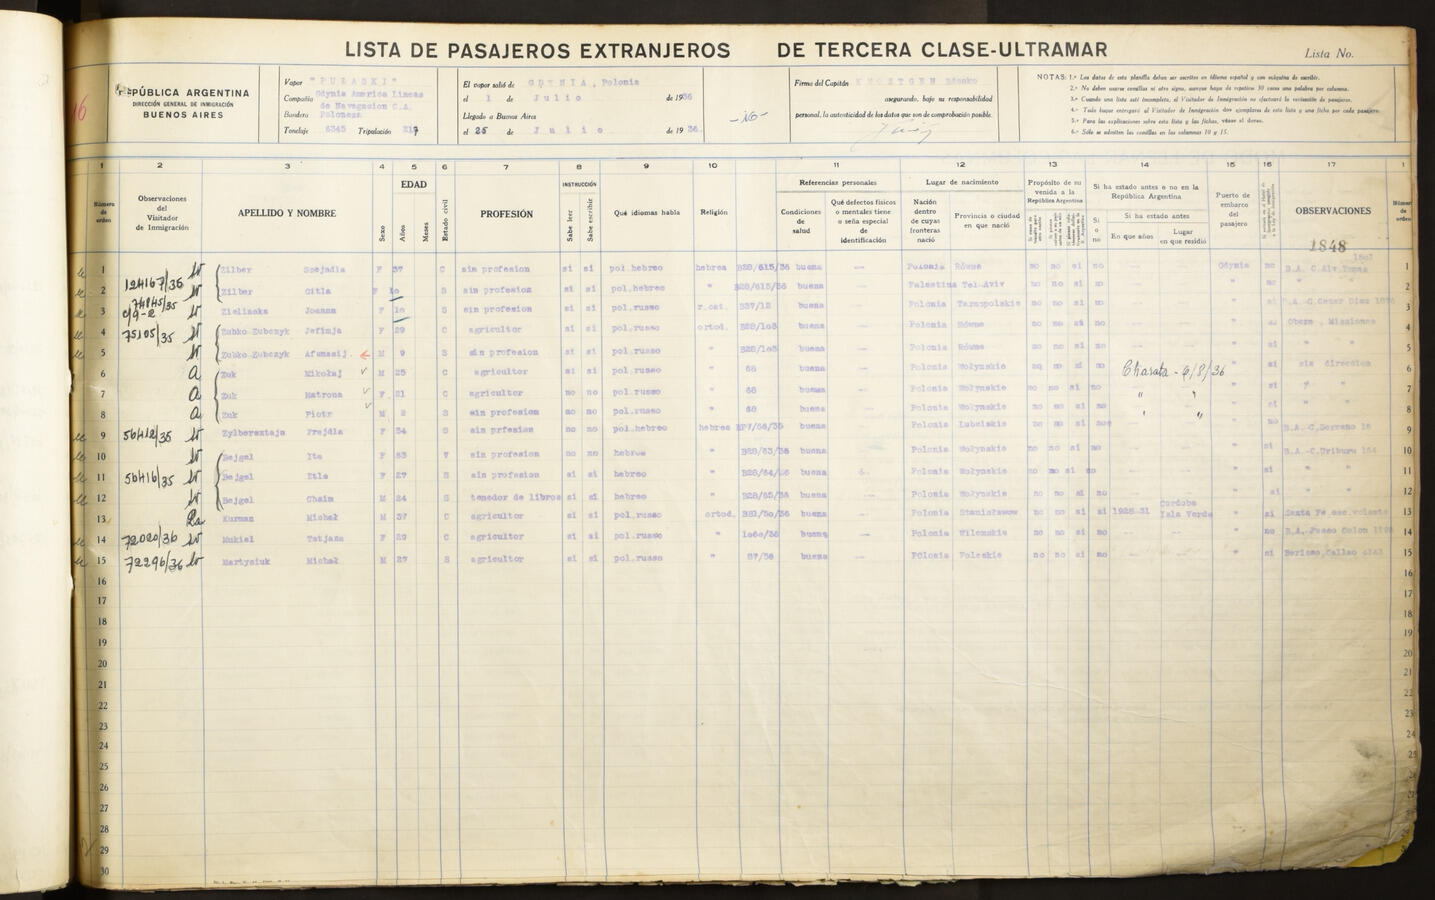 LISTA DE PASAJEROS EXTRANJEROS DE TERCERA CLASE-ULTRAMAR
Lista No.
REPÚBLICA ARGENTINA
DIRECCIÓN GENERAL DE INMIGRACIÓN
BUENOS AIRES
Vapor "PULASKI"
Compañía Gdynia America Lineas de Navegacion C.A.
Bandera Polonesa
Tonelaje 6345 Tripulación 217
El vapor salió de GDYNIA, Polonia
el 1 de Julio de 1936
Llegado a Buenos Aires
el 25 de Julio de 1936.
Firma del Capitán
asegurando, bajo su responsabilidad
personal, la autenticidad de los datos que son de comprobación posible.
NOTAS: 1.ª Los datos de esta planilla deben ser escritos en idioma español y con máquina de escribir.
2.ª No deben usarse comillas ni otro signo, aunque haya de repetirse 30 veces una palabra por columna.
3.ª Cuando una lista esté incompleta, el Visitador de Inmigración no efectuará la revisación de pasajeros.
4.ª Todo buque entregará al Visitador de Inmigración dos ejemplares de esta lista y una ficha por cada pasajero.
5.ª Para las explicaciones sobre esta lista y las fichas, véase al dorso.
6.ª Sólo se admiten las comillas en las columnas 10 y 15.
1 2 3 4 5 6 7 8 9 10 11 12 13 14 15 16 17 1
Número de orden
Observaciones del Visitador de Inmigración
APELLIDO Y NOMBRE
Sexo
EDAD
Años
Meses
Estado civil
PROFESIÓN
INSTRUCCIÓN
Sabe leer
Sabe escribir
Qué idiomas habla
Religión
Referencias personales
Condiciones de salud
Qué defectos físicos o mentales tiene o seña especial de identificación
Lugar de nacimiento
Nación dentro de cuyas fronteras nació
Provincia o ciudad en que nació
Propósito de su venida a la República Argentina
Si ha estado antes o no en la República Argentina
Si o no
Si ha estado antes
En que años
Lugar en que residió
Puerto de embarco del pasajero
OBSERVACIONES
Número de orden
1848
1 Zilber Szejndla F 37 C sin profesion si si pol.hebreo hebrea B28/615/36 buena — Polonia Równe no no si no Gdynia no 1
124167/35
2 Zilber Gitla F 10 S sin profesion si si pol.hebreo " B28/615/36 buena — Palestina Tel-Aviv no no si no " no " 2
74845/35
3 Zielinska Joanna F 10 S sin profesion si si pol.russo r.cat. B37/12 buena — Polonia Tarnopolskie no no si no " si 3
75105/35
4 Zubko-Zubczyk Jefimja F 29 C agricultor si si pol.russo ortod. B28/108 buena — Polonia Równe no no si no " Obera, Misiones 4
5 Zubko-Zubczyk Afanasij M 9 S sin profesion si si pol.russo " B28/108 buena — Polonia Równe no no si no " si " 5
6 a Zuk Mikołaj M 25 C agricultor si si pol.russo " 68 buena — Polonia Wołynskie no no si no Charata - 6/8/36 " si sin direccion 6
7 a Zuk Matrona F 21 C agricultor no no pol.russo " 68 buena — Polonia Wołynskie no no si no " " " si " " 7
8 a Zuk Piotr M 2 S sin profesion no no pol.russo " 68 buena — Polonia Wołynskie no no si no " " " si " " 8
9 56412/35 Zylbersztajn Frejdla F 34 S sin prfesion no no pol.hebreo hebrea buena — Polonia Lubelskie no no si no " no B.A.-C.Serrano 9
10 Bejgel Ita F 63 V sin profesion no no hebreo " B28/63/36 buena — Polonia Wołynskie no no si no " si B.A.-C.Uriburu 10
11 56416/35 Bejgel Etla F 27 S sin profesion si si hebreo " B28/64/36 buena Polonia Wołynskie no no si no " si " " 11
12 Bejgel Chaim M 24 S tenedor de libros si si hebreo " B28/65/36 buena — Polonia Wołynskie no no si no " si " " 12
13 Kurman Michał M 37 C agricultor si si pol.russo ortod. B31/50/36 buena — Polonia Stanisławow no no si si 1928-31 Cordoba Isla Verde " si 13
14 72020/36 Mukiel Tatjana F 29 C agricultor si si pol.russo " buena — Polonia Wilenskie no no si no " no B.A. Paseo Colon 14
15 72296/36 Martysiuk Michał M 27 S agricultor si si pol.russo " 87/36 buena — Polonia Poleskie no no si no " si Berisso,Callao 15
16 16
17 17
18 18
19 19
20 20
21 21
22 22
23 23
24 24
25 25
26 26
27 27
28 28
29 29
30 30